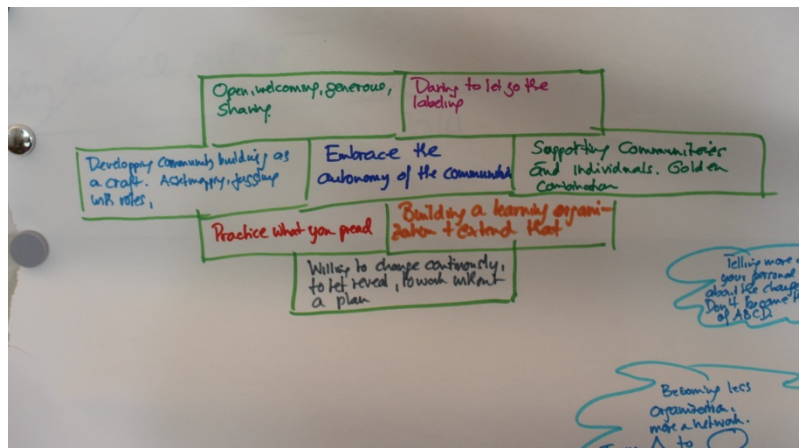 Open, welcoming, generous,
Sharing.
Daring to let go the
labeling
Developping community building as
a craft. Assetmapping,
with roles,
Embrace the
autonomy of the communities
Supporting Communiteries
and individuals. Golden
combination
Practice what you
Building a learning organi-
zation + extend that
Willing to change continously,
to let reveal, to work without
a plan
Telling more
your personal
about the change
Don't become
of ABCD.
Becoming less
organization,
more a network.
to